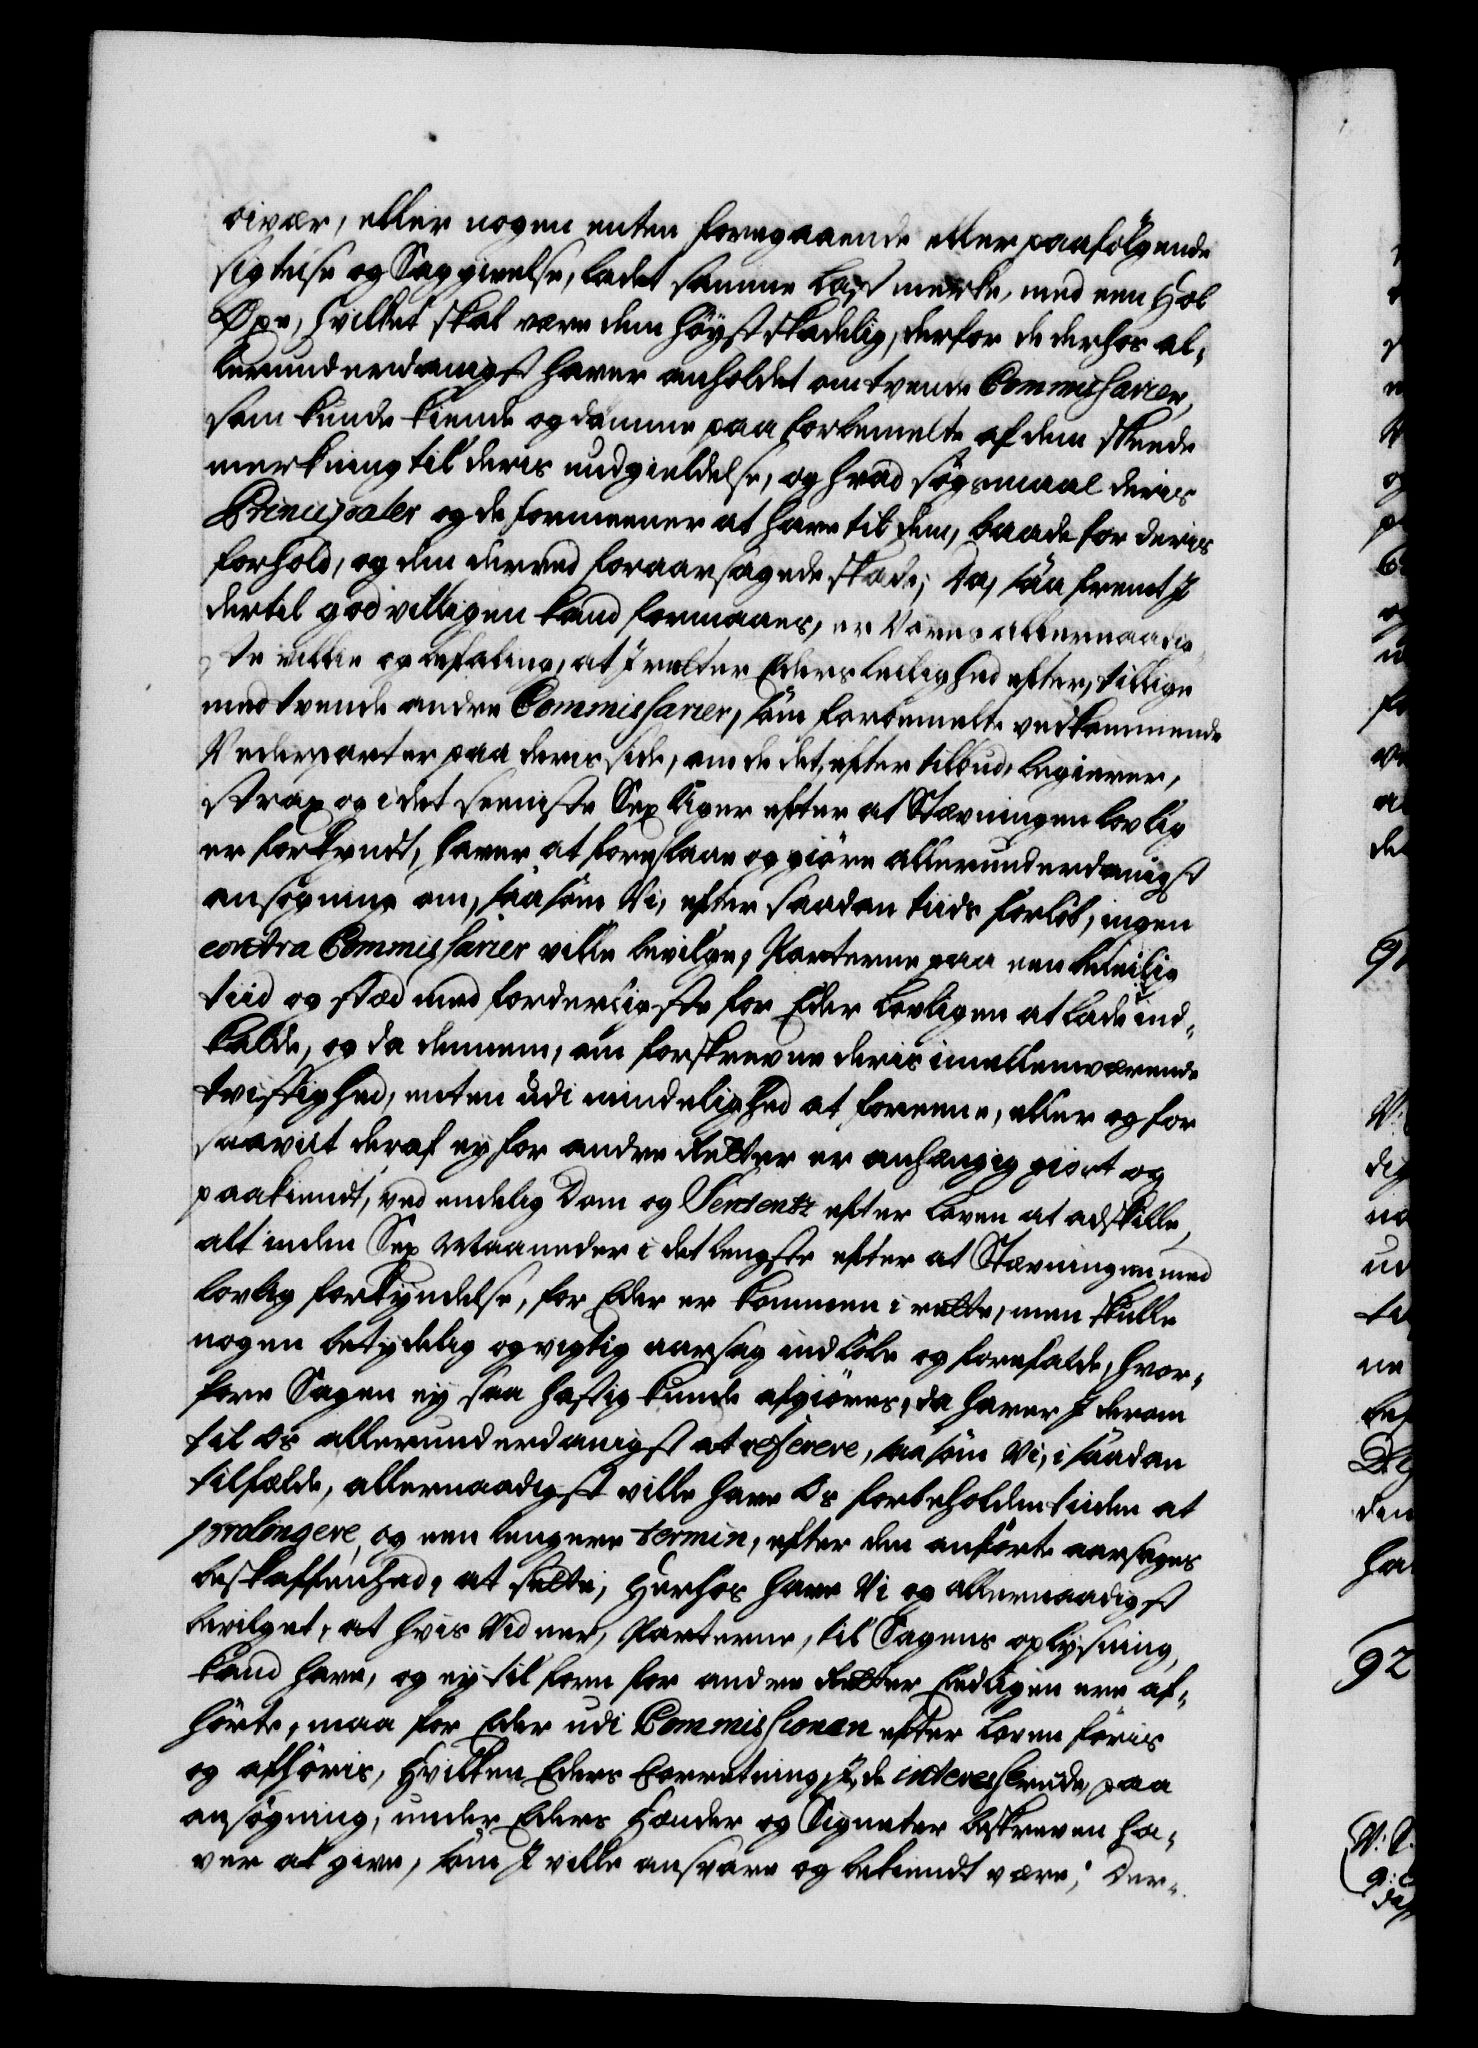 oivær, eller nogen enten foregaaende eller paafölgende
sigtelse og Saggivelse, ladet samme merke, med een Hol
Öxe, hvilket skal være dem höyst skadelig, derfor de derhos al-
lerunderdanigst haver anholdet om tvende Commissarier,
som kunde kiende og dömme paa forbemelte af dem skeede
merkning til deris undgieldelse, og hvad sögsmaal deris
Principaler og de formeener at have til dem, baade for deris
forhold, og den derved foraarsagede skade; Da, saa fremt I
dertil godvilligen kand formaaes, er Vores allernaadig-
ste villie og befaling, at I retter Eders leilighed efter, tillige
med tvende andre Commissarier, som forbemelte vedkommende
Vederparter paa deris side, om de det, efter tilbud, begierer,
strax og i det seeniste Sex Uger efter at Stævningen lovlig
er forkyndt, haver at foreslaae og giöre allerunderdanigst
ansögning om, saasom Vi, efter saadan tiids forlöb, ingen
contra Commissarier ville bevilge, Parterne paa een beleilig
tiid og stæd med forderligste for Eder lovligen at lade ind-
kalde, og da dennem, om forskrevne deris imellemværende
tvistighed, enten udi mindelighed at foreene, eller og for
saavit deraf ey for andre Retter er anhængig giort og
paakiendt, ved endelig Dom og Sentents efter loven at adskille,
alt inden Sex Maaneder i det lengste efter at Stævningen med
lovlig forkyndelse, for Eder er kommen i rette, men skulle
nogen betydelig og vigtig aarsag indlöbe og forefalde, hvor-
fore Sagen ey saa hastig kunde afgiöres, da haver I derom
til Os allerunderdanigst at referere, saasom Vi, i saadan
tilfælde, allernaadigst ville have Os forbeholden tiiden at
prolongere, og een lengere termin, efter den anförte aarsages
beskaffenhed, at sette; Herhos have Vi og allernaadigst
bevilget, at hvis Vidner, Parterne, til Sagens oplysning,
kand have, og ey tilforn for andre Retter Eedligen ere af-
hörte, maa for Eder udi Commissionen efter loven föris
og afhöris, Hvilken Eders Forretning, I, de interesserede, paa
ansögning, under Eders Hænder og Signeter beskreven ha-
ver at give, som I ville ansvare og bekiendt være; Der-